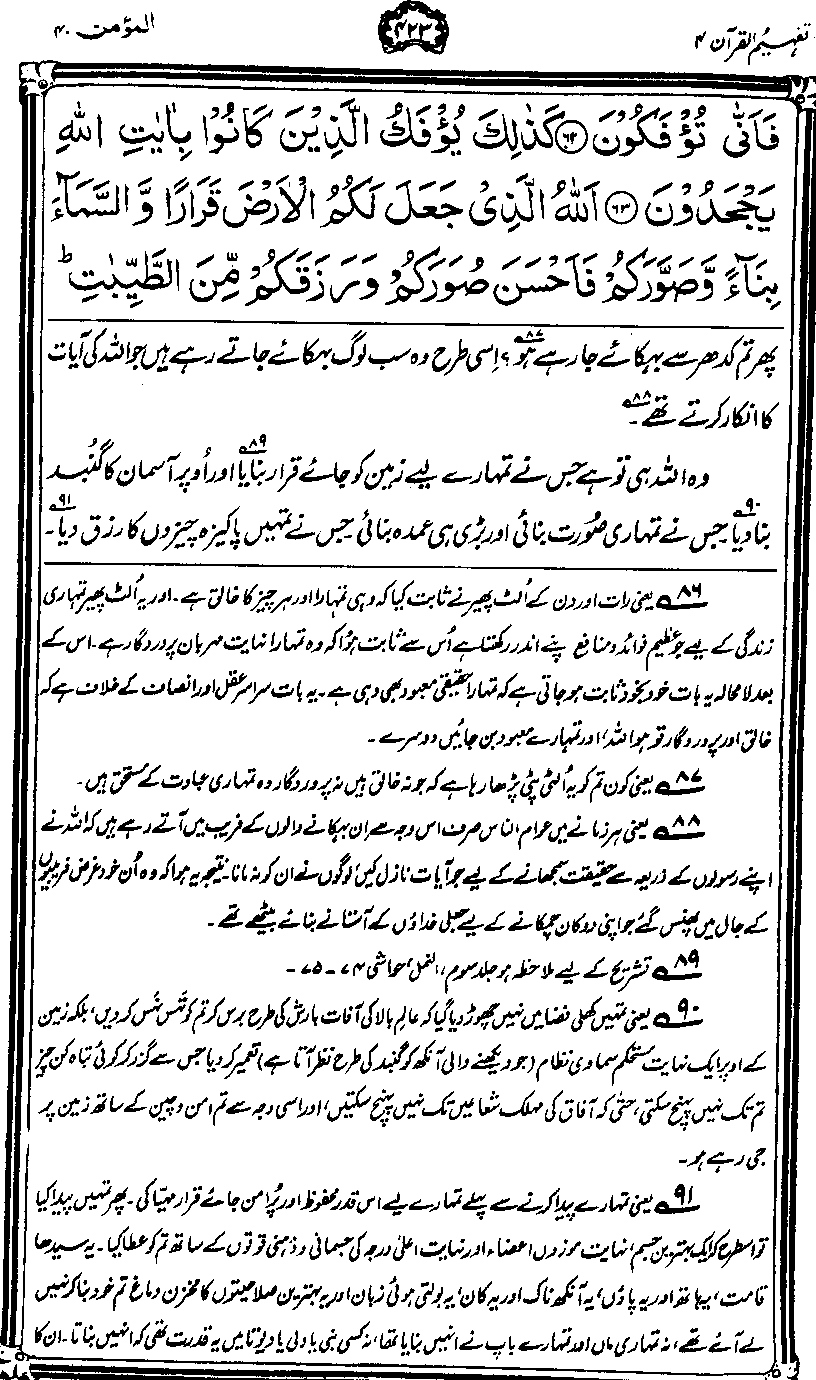 تفہیم القرآن ۴
۴۲۳
المؤمن ۴۰
فَاَنّٰی تُؤْفَكُوْنَ ﴿۶۲﴾ كَذٰلِكَ یُؤْفَكُ الَّذِیْنَ كَانُوْا بِاٰیٰتِ اللّٰهِ
یَجْحَدُوْنَ ﴿۶۳﴾ اَللّٰهُ الَّذِیْ جَعَلَ لَكُمُ الْاَرْضَ قَرَارًا وَّ السَّمَآءَ
بِنَآءً وَّ صَوَّرَكُمْ فَاَحْسَنَ صُوَرَكُمْ وَ رَزَقَكُمْ مِّنَ الطَّیِّبٰتِ ؕ
پھر تم کدھر سے بہکائے جا رہے ہو ۸۷؟ اِسی طرح وہ سب لوگ بہکائے جاتے رہے ہیں جو اللہ کی آیات
کا انکار کرتے تھے ۸۸۔
وہ اللہ ہی تو ہے جس نے تمہارے لیے زمین کو جائے قرار بنایا ۸۹ اور اُوپر آسمان کا گنُبد
بنا دیا ۹۰ جس نے تمہاری صُورت بنائی اور بڑی ہی عمدہ بنائی جس نے تمہیں پاکیزہ چیزوں کا رزق دیا ۹۱۔
۸۶ یعنی رات اور دن کے اُلٹ پھیر نے ثابت کیا کہ وہی تمہارا اور ہر چیز کا خالق ہے۔ اور یہ اُلٹ پھیر تمہاری
زندگی کے لیے جو عظیم فوائد و منافع اپنے اندر رکھتا ہے اُس سے ثابت ہوا کہ وہ تمہارا نہایت مہربان پروردگار ہے۔ اس کے
بعد لا محالہ یہ بات خود بخود ثابت ہو جاتی ہے کہ تمہارا حقیقی معبود بھی وہی ہے۔ یہ بات سراسر عقل اور انصاف کے خلاف ہے کہ
خالق اور پروردگار تو ہو اللہ، اور تمہارے معبود بن جائیں دوسرے۔
۸۷ یعنی کون تم کو یہ اُلٹی پٹی پڑھا رہا ہے کہ جو نہ خالق ہیں نہ پروردگار وہ تمہاری عبادت کے مستحق ہیں۔
۸۸ یعنی ہر زمانے میں عوام الناس صرف اس وجہ سے ان بہکانے والوں کے فریب میں آتے رہے ہیں کہ اللہ نے
اپنے رسولوں کے ذریعہ سے حقیقت سمجھانے کے لیے جو آیات نازل کیں، لوگوں نے ان کو نہ مانا۔ نتیجہ یہ ہوا کہ وہ اُن خود غرض فریبیوں
کے جال میں پھنس گئے جو اپنی دوکان چمکانے کے لیے جعلی خداؤں کے آستانے بنائے بیٹھے تھے۔
۸۹ تشریح کے لیے ملاحظہ ہو جلد سوم، النمل، حواشی ۷۴-۷۵-
۹۰ یعنی تمہیں کھلی فضا میں نہیں چھوڑ دیا گیا کہ عالمِ بالا کی آفات بارش کی طرح برس کر تم کو تَہس نَہس کر دیں، بلکہ زمین
کے اوپر ایک نہایت مستحکم سماوی نظام (جو دیکھنے والی آنکھ کو گنبد کی طرح نظر آتا ہے) تعمیر کر دیا جس سے گزر کر کوئی تباہ کن چیز
تم تک نہیں پہنچ سکتی، حتیٰ کہ آفاق کی مہلک شعاعیں تک نہیں پہنچ سکتیں، اور اسی وجہ سے تم امن و چین کے ساتھ زمین پر
جی رہے ہو۔
۹۱ یعنی تمہارے پیدا کرنے سے پہلے تمہارے لیے اس قدر محفوظ اور پُر امن جائے قرار مہیّا کی۔ پھر تمہیں پیدا کیا
تو اسطرح کہ ایک بہترین جسم، نہایت موزوں اعضاء اور نہایت اعلیٰ درجہ کی جسمانی و ذہنی قوتوں کے ساتھ تم کو عطا کیا۔ یہ سیدھا
قامت، یہ ہاتھ اور یہ پاؤں، یہ آنکھ ناک اور یہ کان، یہ بولتی ہوئی زبان اور یہ بہترین صلاحیتوں کا مخزن دماغ تم خود بنا کر نہیں
لے آئے تھے، نہ تمہاری ماں اور تمہارے باپ نے انہیں بنایا تھا، نہ کسی نبی یا ولی یا دیوتا میں یہ قدرت تھی کہ انہیں بناتا۔ ان کا